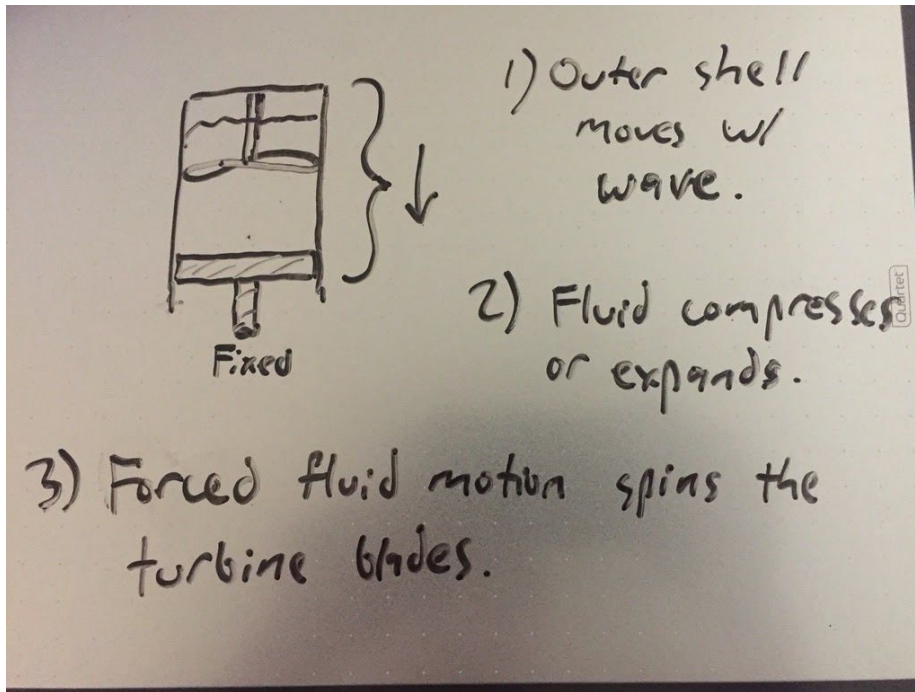 1) Outer shell
moves w/
wave.
2) Fluid compresses
or expands.
Quartet
Fixed
3) Forced fluid motion spins the
turbine blades.